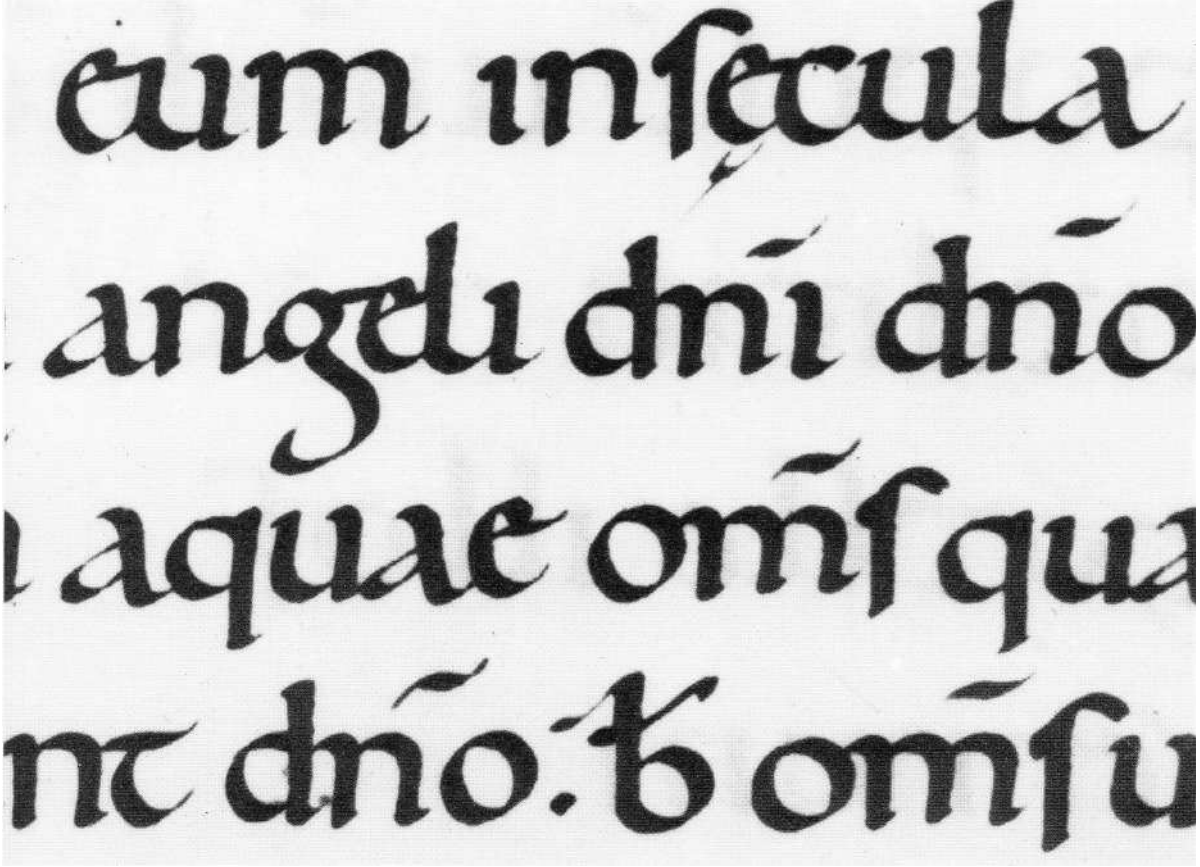 eum inſęcula
angeli dn̄i dn̄o
aquae om̄ſ qua
nt dn̄o. b̄ om̄ſu